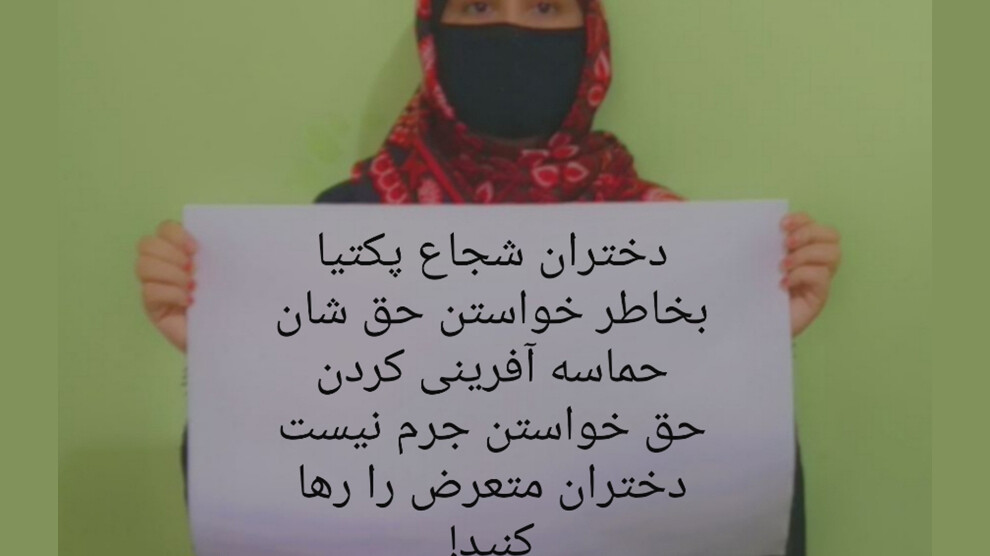 دختران شجاع پکتیا
بخاطر خواستن حق شان
حماسه آفرینی کردن
حق خواستن جرم نیست
دختران متعرض را رها
کنید!